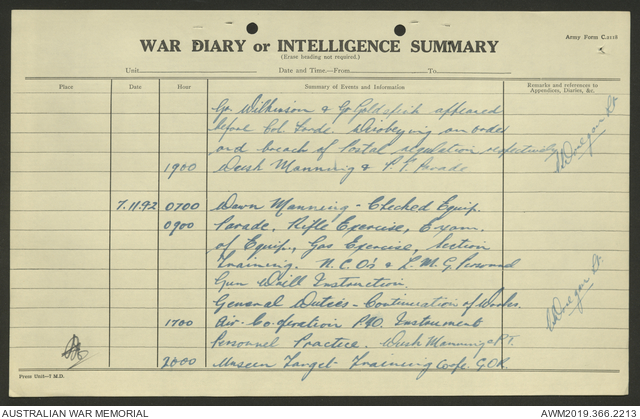 Army Form C.2118
WAR DIARY or INTELLIGENCE SUMMARY
(Erase heading not required.)
Unit Date and Time.—From To
Place Date Hour Summary of Events and Information Remarks and references to Appendices, Diaries, &c.
Gr. Wilkinson & Gr. Goldspink appeared
before Col. Disobeying an order
and breach of Postal regulation respectively
1900 Dusk Manning & P.T. Parade
7.11.42 0700 Dawn Manning - Checked Equip.
0900 Parade, Rifle Exercise, Exam.
of Equip., Gas Exercise, Section
Training. N.C.O's & L.M.G. Personnel
Gun Drill Instruction.
General Duties - Continuation of Works.
1700 Air Co-operation Instrument
Personnel Practice. Dusk Manning & P.T.
2000 Unseen Target Training Coy. G.O.R.
Press Unit—7 M.D.
AUSTRALIAN WAR MEMORIAL AWM2019.366.2213